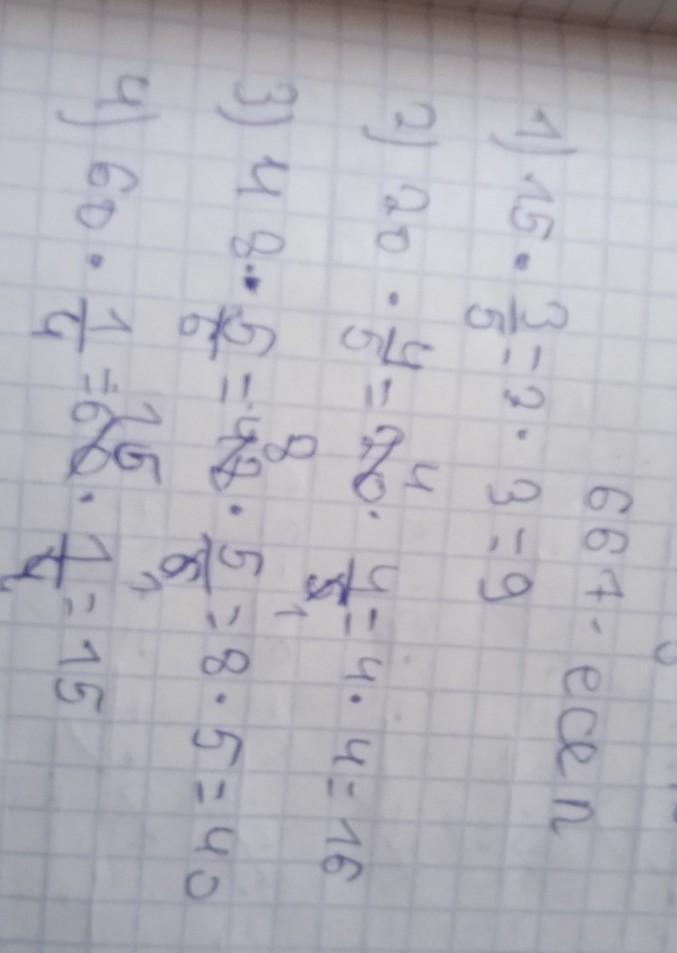 667-есеп
1) 15 · 3/5 = 3 · 3 = 9
2) 20 · 4/5 = 20 4 · 4/5 1 = 4 · 4 = 16
3) 48 · 5/6 = 48 8 · 5/6 1 = 8 · 5 = 40
4) 60 · 1/4 = 60 15 · 1/4 = 15